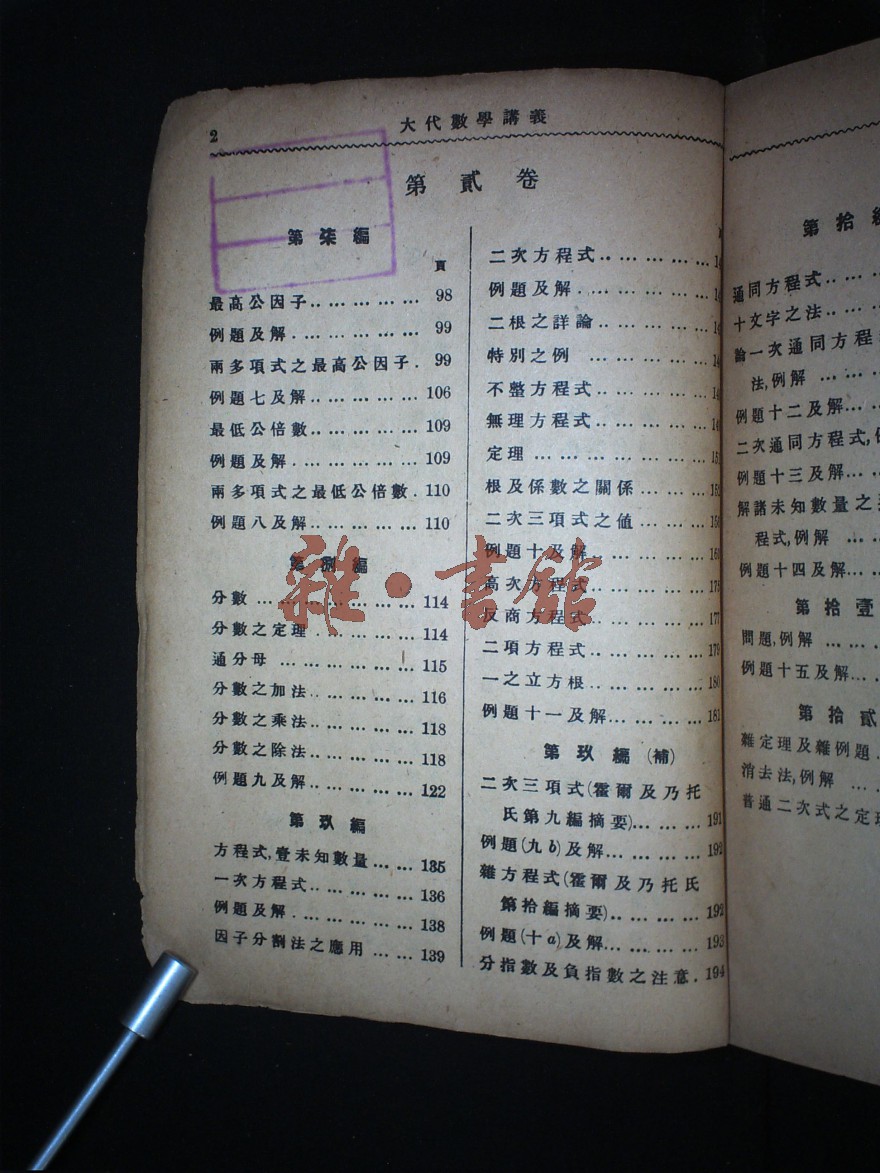 2
大代數學講義
第貳卷
第柒編
頁
最高公因子.. ... ... ... ... 98
例題及解. ... ... ... ... ... 99
兩多項式之最高公因子. 99
例題七及解.. ... ... ... ... 106
最低公倍數.. ... ... ... ... 109
例題及解. ... ... ... ... ... 109
兩多項式之最低公倍數. 110
例題八及解.. ... ... ... ... 110
第捌編
分數 ... ... ... ... ... ... ... 114
分數之定理. ... ... ... ... 114
通分母 ... ... ... ... ... ... 115
分數之加法.. ... ... ... ... 116
分數之乘法.. ... ... ... ... 118
分數之除法.. ... ... ... ... 118
例題九及解.. ... ... ... ... 122
第玖編
方程式,壹未知數量... ... 135
一次方程式.. ... ... ... ... 136
例題及解. ... ... ... ... ... 138
因子分割法之應用 ... ... 139
二次方程式.. ... ... ... ...
例題及解. ... ... ... ... ...
二根之詳論.. ... ... ... ...
特別之例 ... ... ... ... ...
不整方程式.. ... ... ... ...
無理方程式.. ... ... ... ...
定理 ... ... ... ... ... ... ...
根及係數之關係... ... ...
二次三項式之値 ... ... ...
例題十及解.. ... ... ... ...
高次方程式.. ... ... ... ...
反商方程式.. ... ... ... ... 177
二項方程式.. ... ... ... ... 179
一之立方根.. ... ... ... ... 180
例題十一及解... ... ... ... 181
第玖編(補)
二次三項式(霍爾及乃托
氏第九編摘要)... ... ... 191
例題(九b)及解... ... ... ... 192
雜方程式(霍爾及乃托氏
第拾編摘要).. ... ... ... 192
例題(十a)及解... ... ... ... 193
分指數及負指數之注意. 194
第拾
通同方程式.. ...
十文字之法.. ...
論一次通同方程
法,例解 ... ...
例題十二及解... ...
二次通同方程式,
例題十三及解... ...
解諸未知數量之
程式,例解 ... ...
例題十四及解... ...
第拾壹
問題,例解 ... ...
例題十五及解... ...
第拾貳
雜定理及雜例題.
消去法,例解 ... ...
普通二次式之定
雜·書館